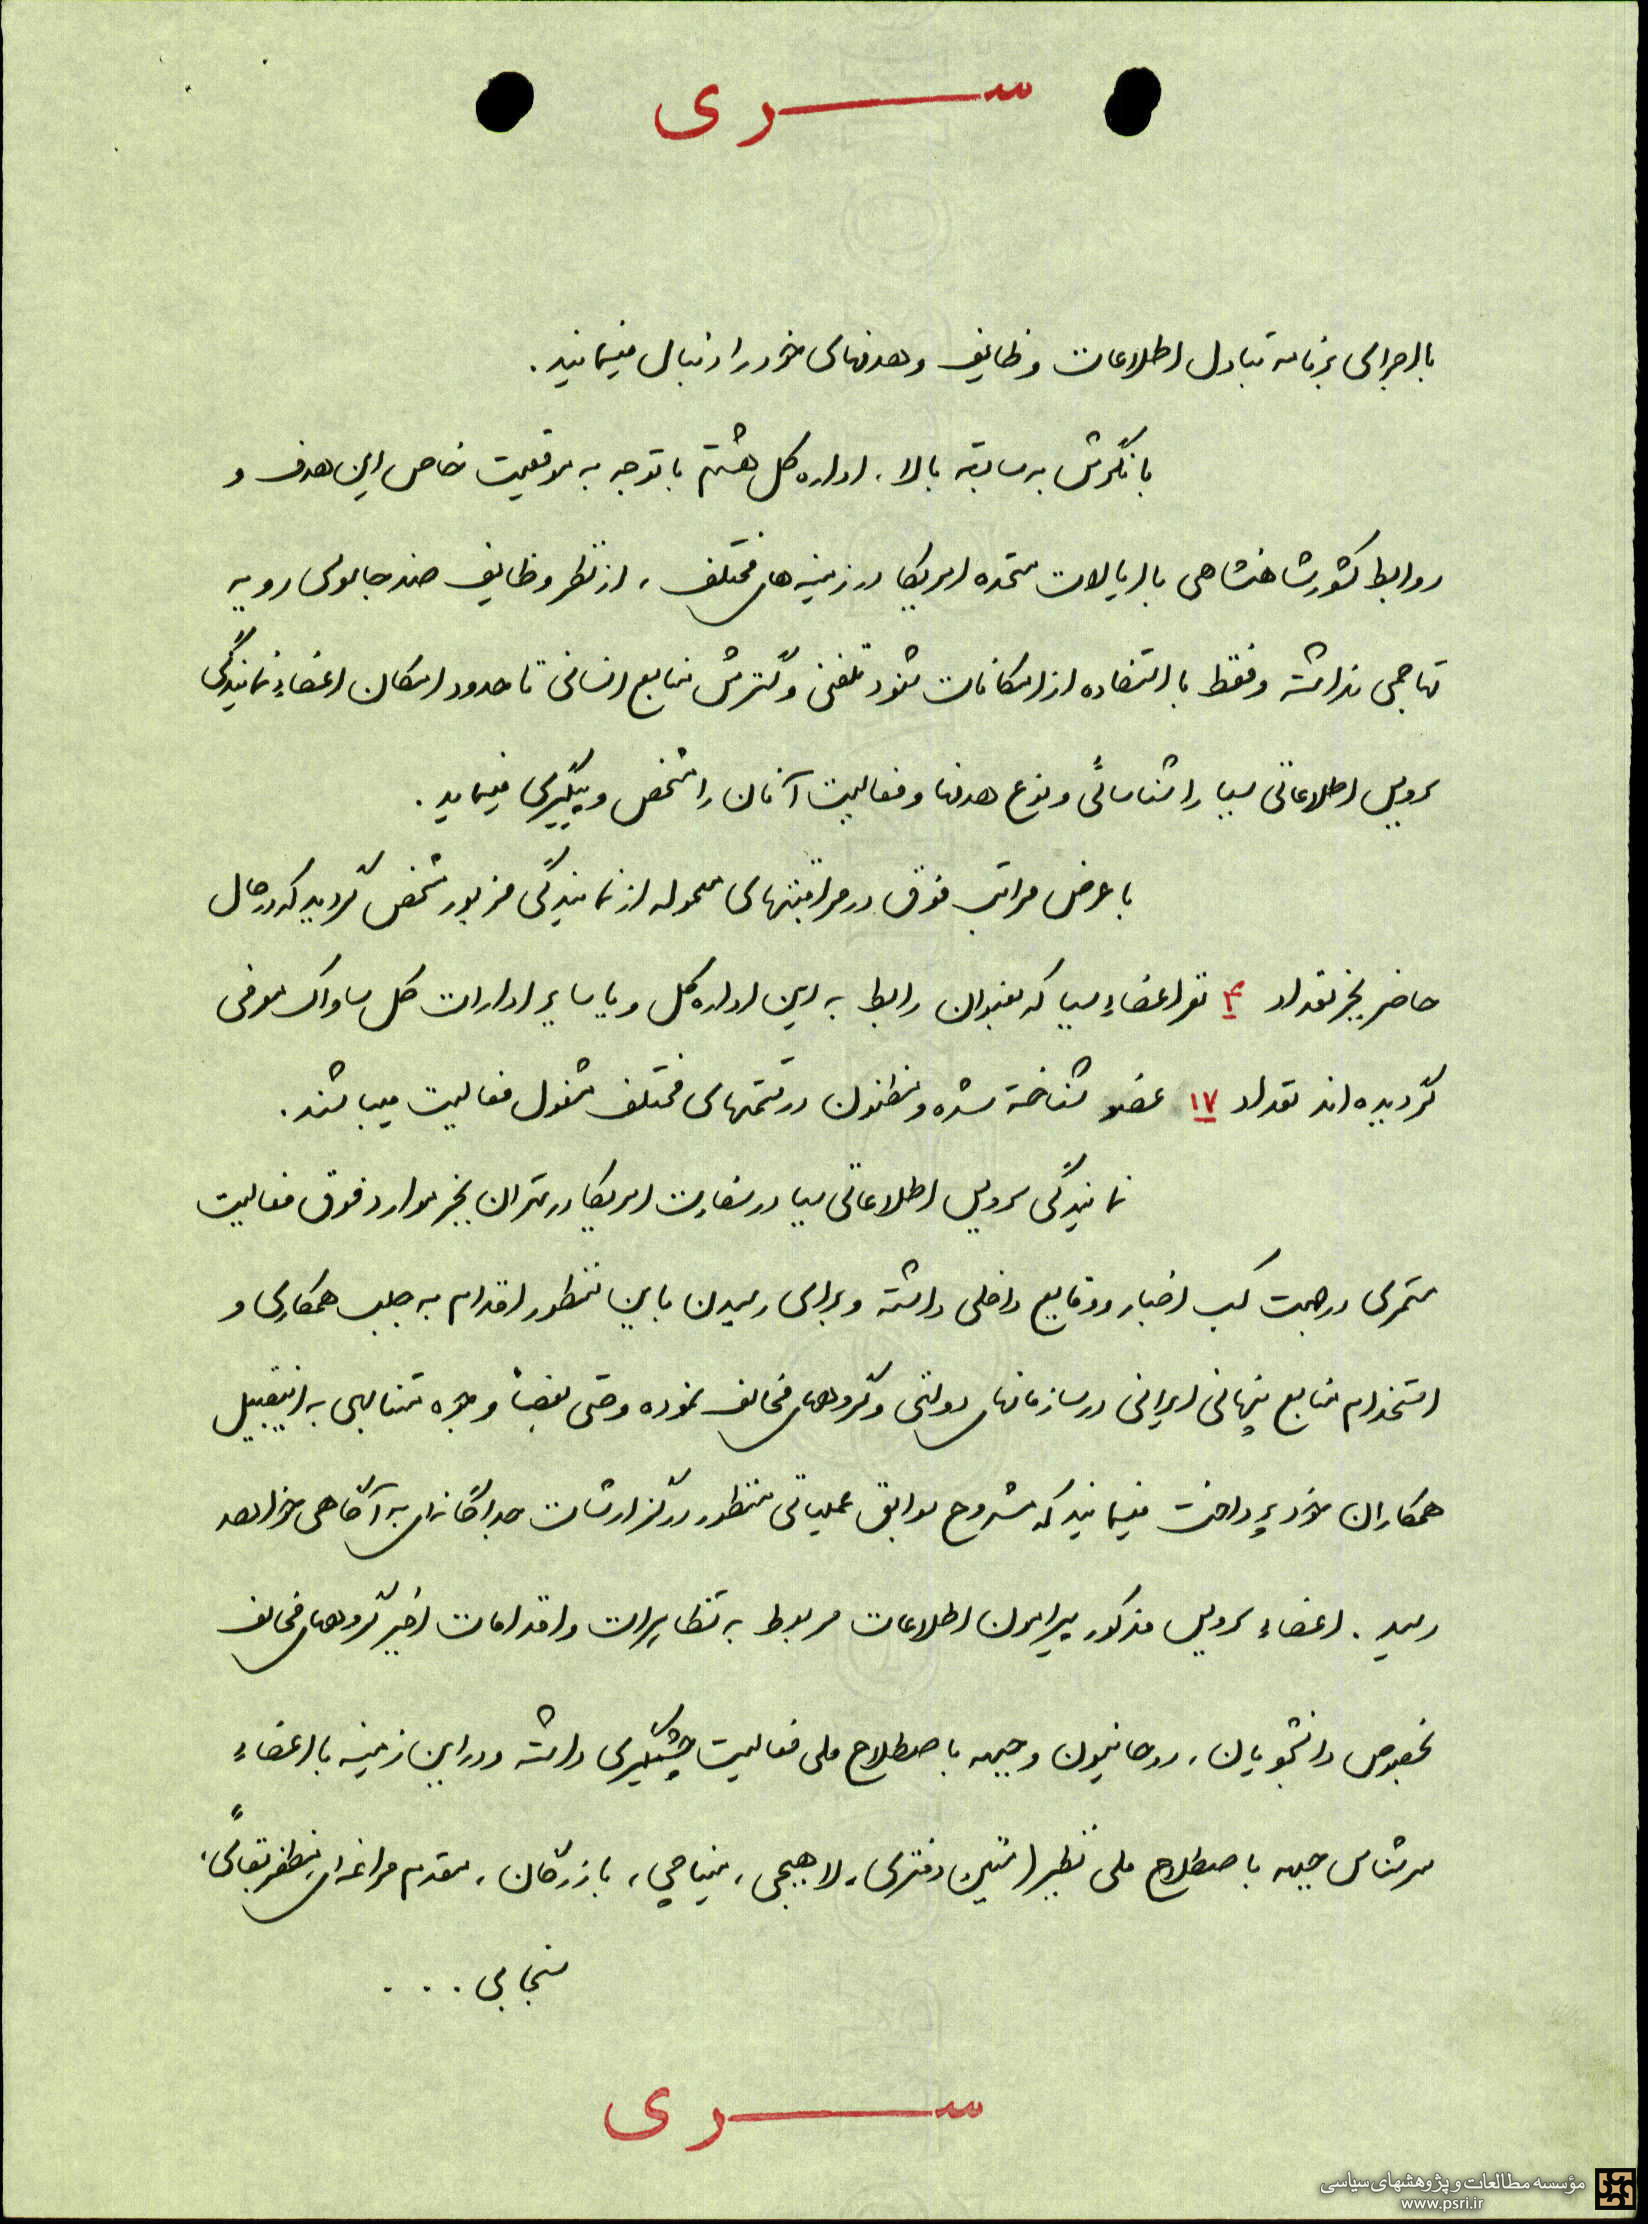 سری
با اجرای برنامه تبادل اطلاعات وظایف و هدفهای خود را دنبال مینمایند.
با نگرش به سابقه بالا، اداره کل هشتم با توجه به موقعیت خاص این هدف و
روابط کشور شاهنشاهی با ایالات متحده امریکا در زمینه های مختلف، از نظر وظایف ضد جاسوسی رویه
تهاجمی نداشته و فقط با استفاده از امکانات شنود تلفنی و گسترش منابع انسانی تا حدود امکان اعضاء نمایندگی
سرویس اطلاعاتی سیا را شناسائی و نوع هدفها و فعالیت آنان را مشخص و پیگیری مینماید.
با عرض مراتب فوق در مراقبتهای معموله از نمایندگی مزبور مشخص گردید که در حال
حاضر بجز تعداد ۴ نفر اعضاء سیا که بعنوان رابط به این اداره کل و یا سایر ادارات کل ساواک معرفی
گردیده اند تعداد ۱۷ عضو شناخته شده و مظنون در قسمتهای مختلف مشغول فعالیت میباشند.
نمایندگی سرویس اطلاعاتی سیا در سفارت امریکا در تهران بجز موارد فوق فعالیت
مستمری در جهت کسب اخبار و وقایع داخلی داشته و برای رسیدن باین منظور اقدام به جلب همکاری و
استخدام منابع پنهانی ایرانی در سازمانهای دولتی و گروههای مخالف نموده و حتی بعضاً وجوه متنابهی به اینقبیل
همکاران خود پرداخت مینمایند که مشروح سوابق عملیاتی منظور در گزارشات جداگانه ای به آگاهی خواهد
رسید. اعضاء سرویس مذکور پیرامون اطلاعات مربوط به تظاهرات و اقدامات اخیر گروههای مخالف
بخصوص دانشجویان، روحانیون و جبهه باصطلاح ملی فعالیت چشمگیری داشته و در این زمینه با اعضاء
سرشناس جبهه باصطلاح ملی نظیر (متین دفتری، لاهیجی، میناچی، بازرگان، مقدم مراغه ای، مظفر بقائی،
سنجابی . . .
سری
مؤسسه مطالعات و پژوهشهای سیاسی
www.psri.ir